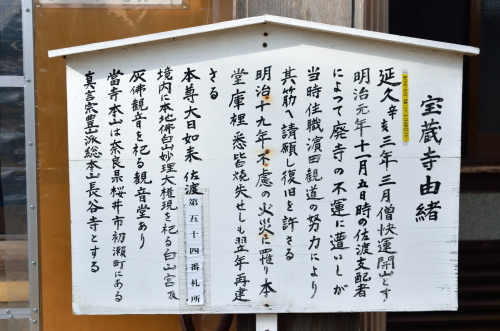 宝蔵寺由緒
延久辛亥三年三月僧快運開山とす
明治元年十一月五日時の佐渡支配者
によつて廃寺の不運に遭いしが
当時住職濱田観道の努力により
其筋へ請願し復旧を許さる
明治十九年不慮の火災に罹り本
堂庫裡悉皆焼失せしも翌年再建
さる
本尊大日如来 佐渡第五十四番札所
境内に本地佛白山妙理大権現を祀る白山宮及
灰佛観音を祀る観音堂あり
當寺本山は奈良県桜井市初瀬町にある
真言宗豊山派総本山長谷寺とする